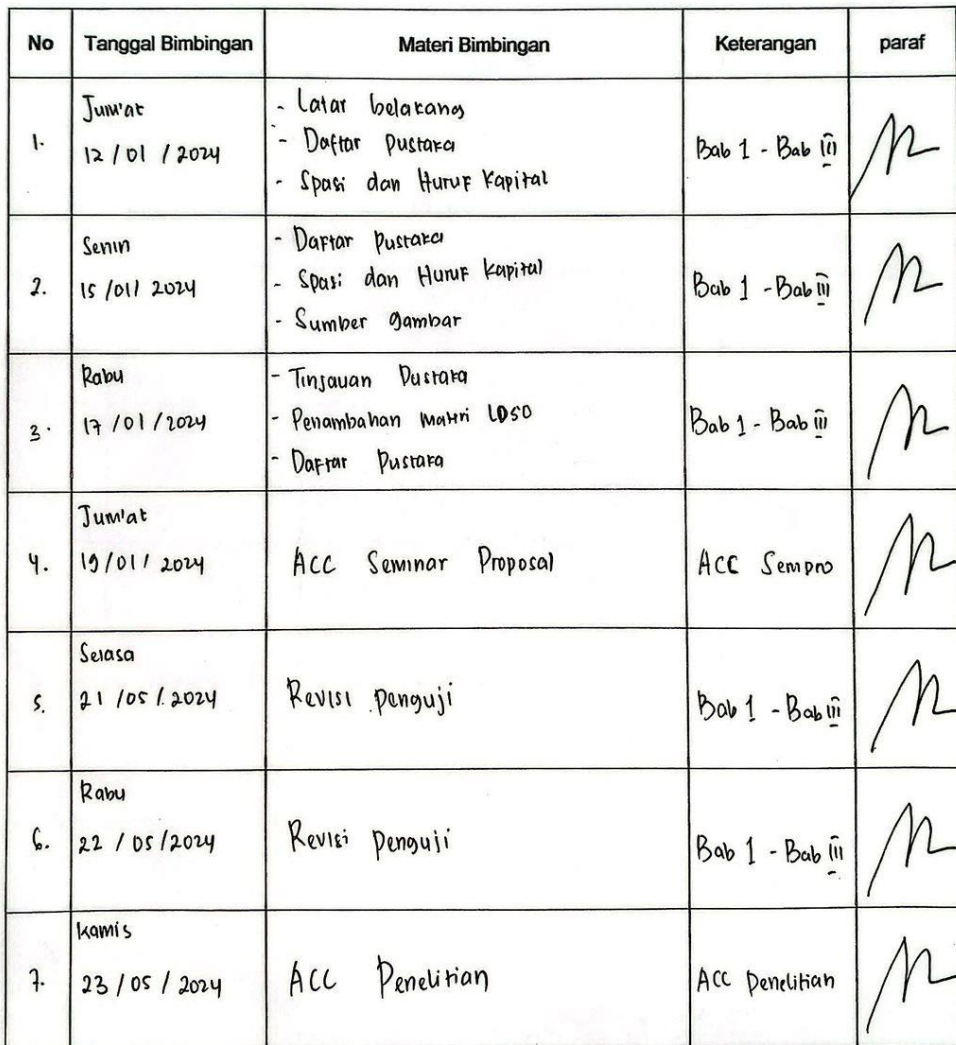 No Tanggal Bimbingan Materi Bimbingan Keterangan paraf
1. Jum'at
12 / 01 / 2024
- Latar belakang
- Daftar Pustaka
- Spasi dan Huruf Kapital
Bab 1 - Bab III
2. Senin
15 / 01 / 2024
- Daftar Pustaka
- Spasi dan Huruf Kapital
- Sumber gambar
Bab 1 - Bab III
3. Rabu
17 / 01 / 2024
- Tinjauan Pustaka
- Penambahan materi LDSO
- Daftar Pustaka
Bab 1 - Bab III
4. Jum'at
19 / 01 / 2024
ACC Seminar Proposal
ACC Sempro
5. Selasa
21 / 05 / 2024
Revisi penguji
Bab 1 - Bab III
6. Rabu
22 / 05 / 2024
Revisi penguji
Bab 1 - Bab III
7. Kamis
23 / 05 / 2024
ACC Penelitian
ACC Penelitian